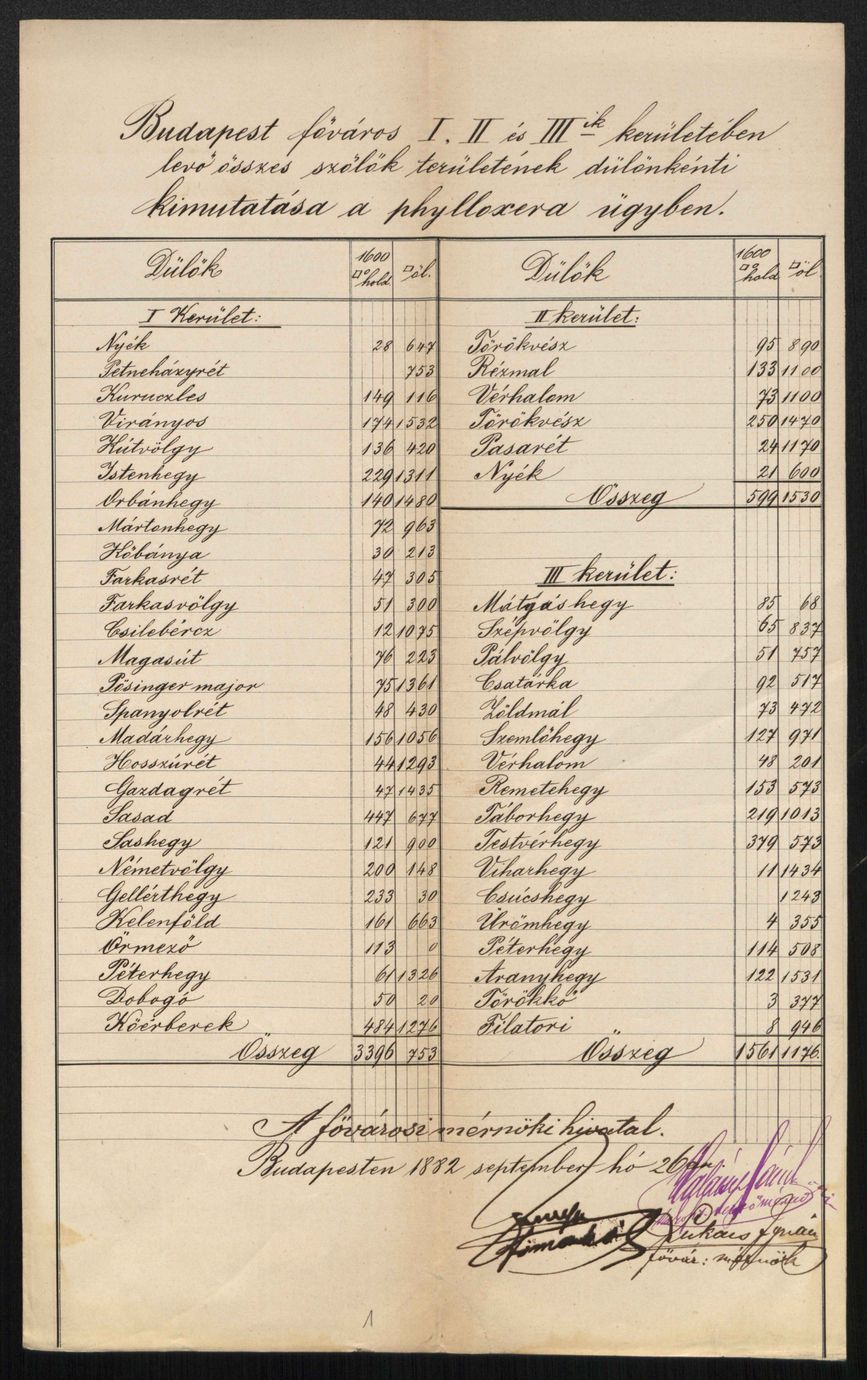 Budapest főváros I, II és III ik kerületében
levő összes szőlők területének dülönkénti
kimutatása a phylloxera ügyben.
Dülők 1600 □° hold □ öl.
I Kerület:
Nyék 28 647
Petneházyrét 753
Kuruczles 149 116
Virányos 174 1532
Kútvölgy 136 420
Istenhegy 229 1311
Orbánhegy 140 1480
Mártonhegy 72 963
Kőbánya 30 213
Farkasrét 47 305
Farkasvölgy 51 300
Csilebércz 12 1075
Magasút 76 223
Pősinger major 75 1361
Spanyolrét 48 430
Madárhegy 156 1056
Hosszúrét 44 1293
Gazdagrét 47 1435
Sasad 447 677
Sashegy 121 900
Németvölgy 200 148
Gellérthegy 233 30
Kelenföld 161 663
Örmező 113 0
Péterhegy 61 1326
Dobogó 50 20
Kőérberek 484 1276
Összeg 3396 753
Dülők 1600 □° hold □ öl.
II kerület:
Törökvész 95 890
Rézmal 133 1100
Vérhalom 73 1100
Törökvész 250 1470
Pasarét 24 1170
Nyék 21 600
Összeg 599 1530
III kerület:
Mátyáshegy 85 68
Szépvölgy 65 837
Pálvölgy 51 757
Csatárka 92 517
Zöldmál 73 472
Szemlőhegy 127 971
Vérhalom 48 201
Remetehegy 153 573
Táborhegy 219 1013
Testvérhegy 379 573
Viharhegy 11 1434
Csúcshegy 1243
Ürömhegy 4 355
Péterhegy 114 508
Aranyhegy 122 1531
Törökkő 3 377
Filatori " 8 946
Összeg 1561 1176.
A fővárosi mérnöki hivatal.
Budapesten 1882 september hó 26án
Lukács Ignán
fővár: mérnök
1